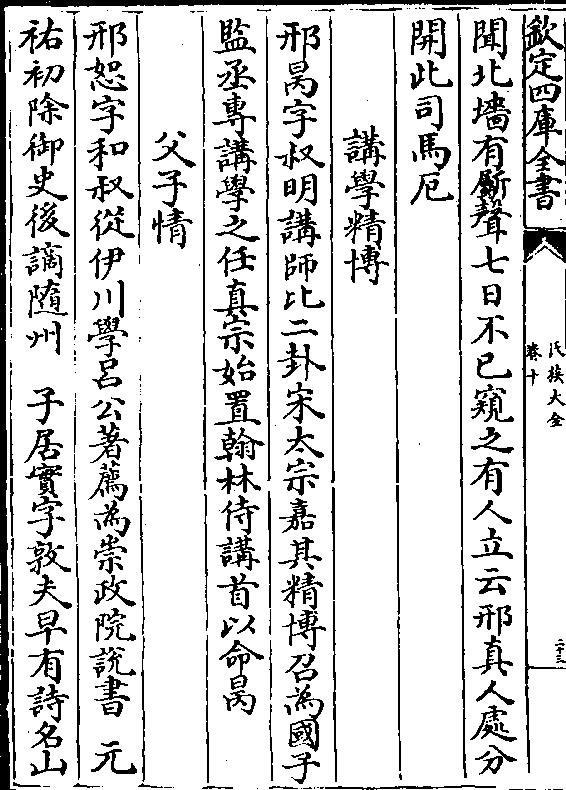 欽定四庫全書
氏族大全
卷十
二十三
聞北墻有斸聲七日不已窺之有人立云邢真人處分
開此司馬厄
講學精博
邢昺字叔明講師比二卦宋太宗嘉其精博召為國子
監丞專講學之任真宗始置翰林侍講首以命昺
父子情
邢恕字和叔從伊川學呂公著薦為崇政院説書 元
祐初除御史後謫隨州 子居實字敦夫早有詩名山